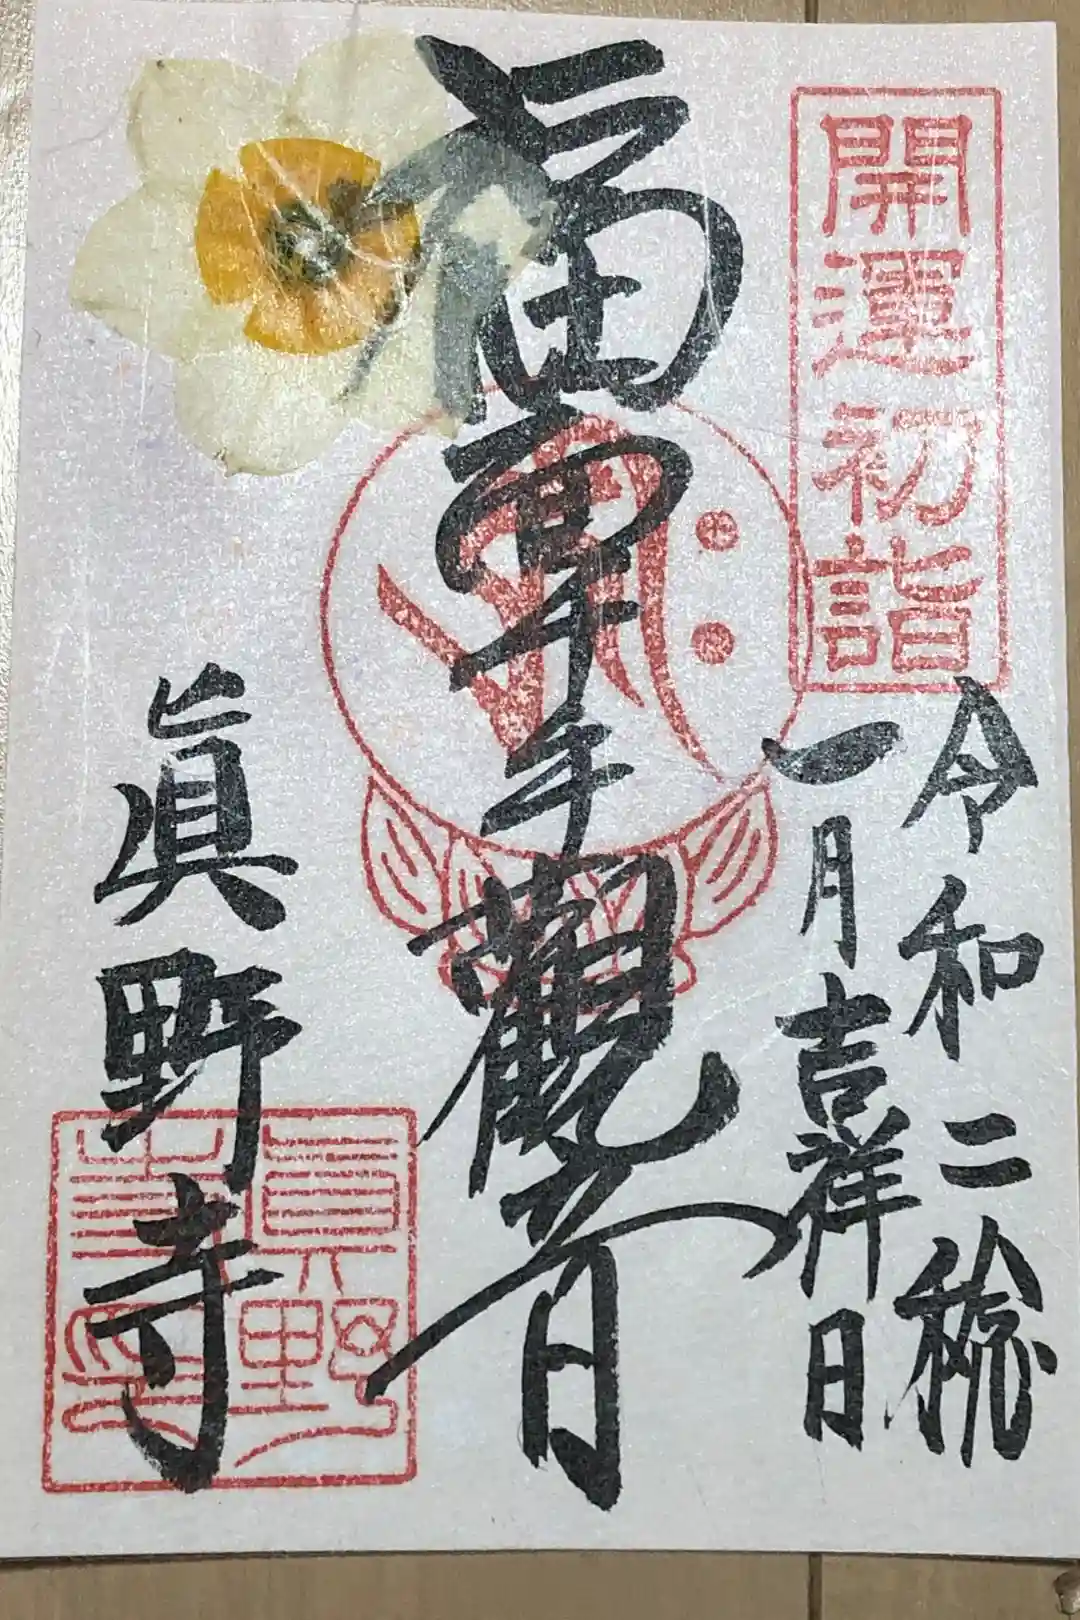 開運初詣
令和二稔
一月吉祥日
福面千手觀音
眞野寺